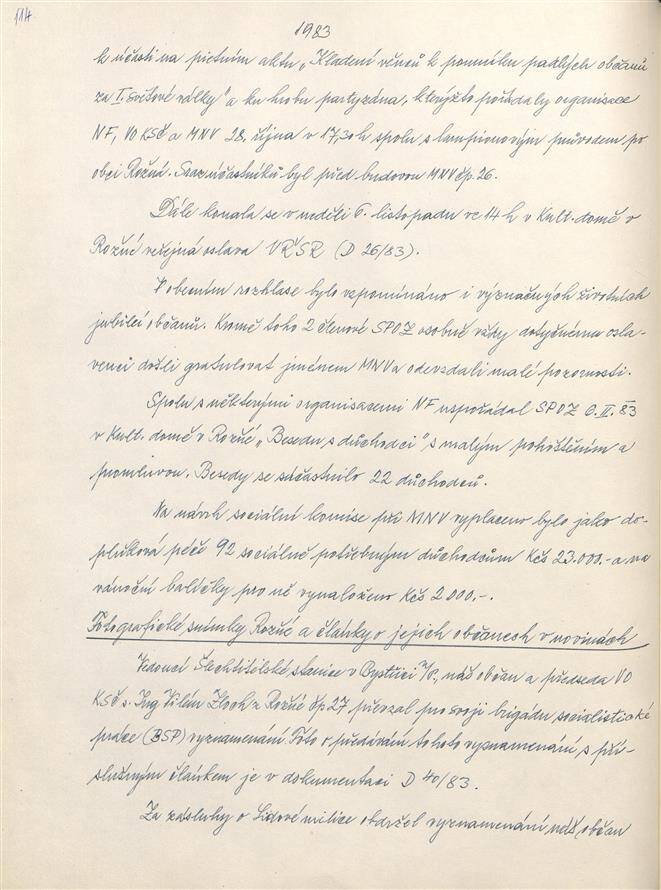 114
1983
k účasti na pietním aktu „Kladení věnců k pomníku padlých občanů
za I. světové války" a ku hrobu partyzána, kterýžto pořádaly organisace
NF, VO KSČ a MNV 28. října v 17,30 h spolu s lampionovým průvodem po
obci Rožné. Sraz účastníků byl před budovou MNV čp. 26.
Dále konala se v neděli 6. listopadu ve 14 h v Kult. domě v
Rožné veřejná oslava VŘSR (D 26/83).
V obecním rozhlase bylo vzpomínáno i význačných životních
jubileí občanů. Kromě toho 2 členové SPOZ osobně vždy dotyčnému osla-
venci došli gratulovat jménem MNV a odevzdali malé pozornosti.
Spolu s některými organisacemi NF uspořádal SPOZ 6. II. 83
v Kult. domě v Rožné „Besedu s důchodci" s malým pohoštěním a
promluvou. Besedy se súčastnilo 22 důchodců.
Na návrh sociální komise při MNV vyplaceno bylo jako do-
plňková péče 92 sociálně potřebným důchodcům Kčs 23.000.- a na
vánoční balíčky pro ně vynaloženo Kčs 2000.-.
Fotografické snímky Rožné a články o jejich občanech v novinách
Vedoucí Šlechtitelské stanice v Bystřici n/P., náš občan a předseda VO
KSČ s. Ing Vilém Zloch z Rožné čp 27 převzal pro svoji brigádu socialistické
práce (BSP) vyznamenání. Foto o předávání tohoto vyznamenání s pří-
slušným článkem je v dokumentaci D 40/83.
Za zásluhy o Lidové milice obdržel vyznamenání náš občan